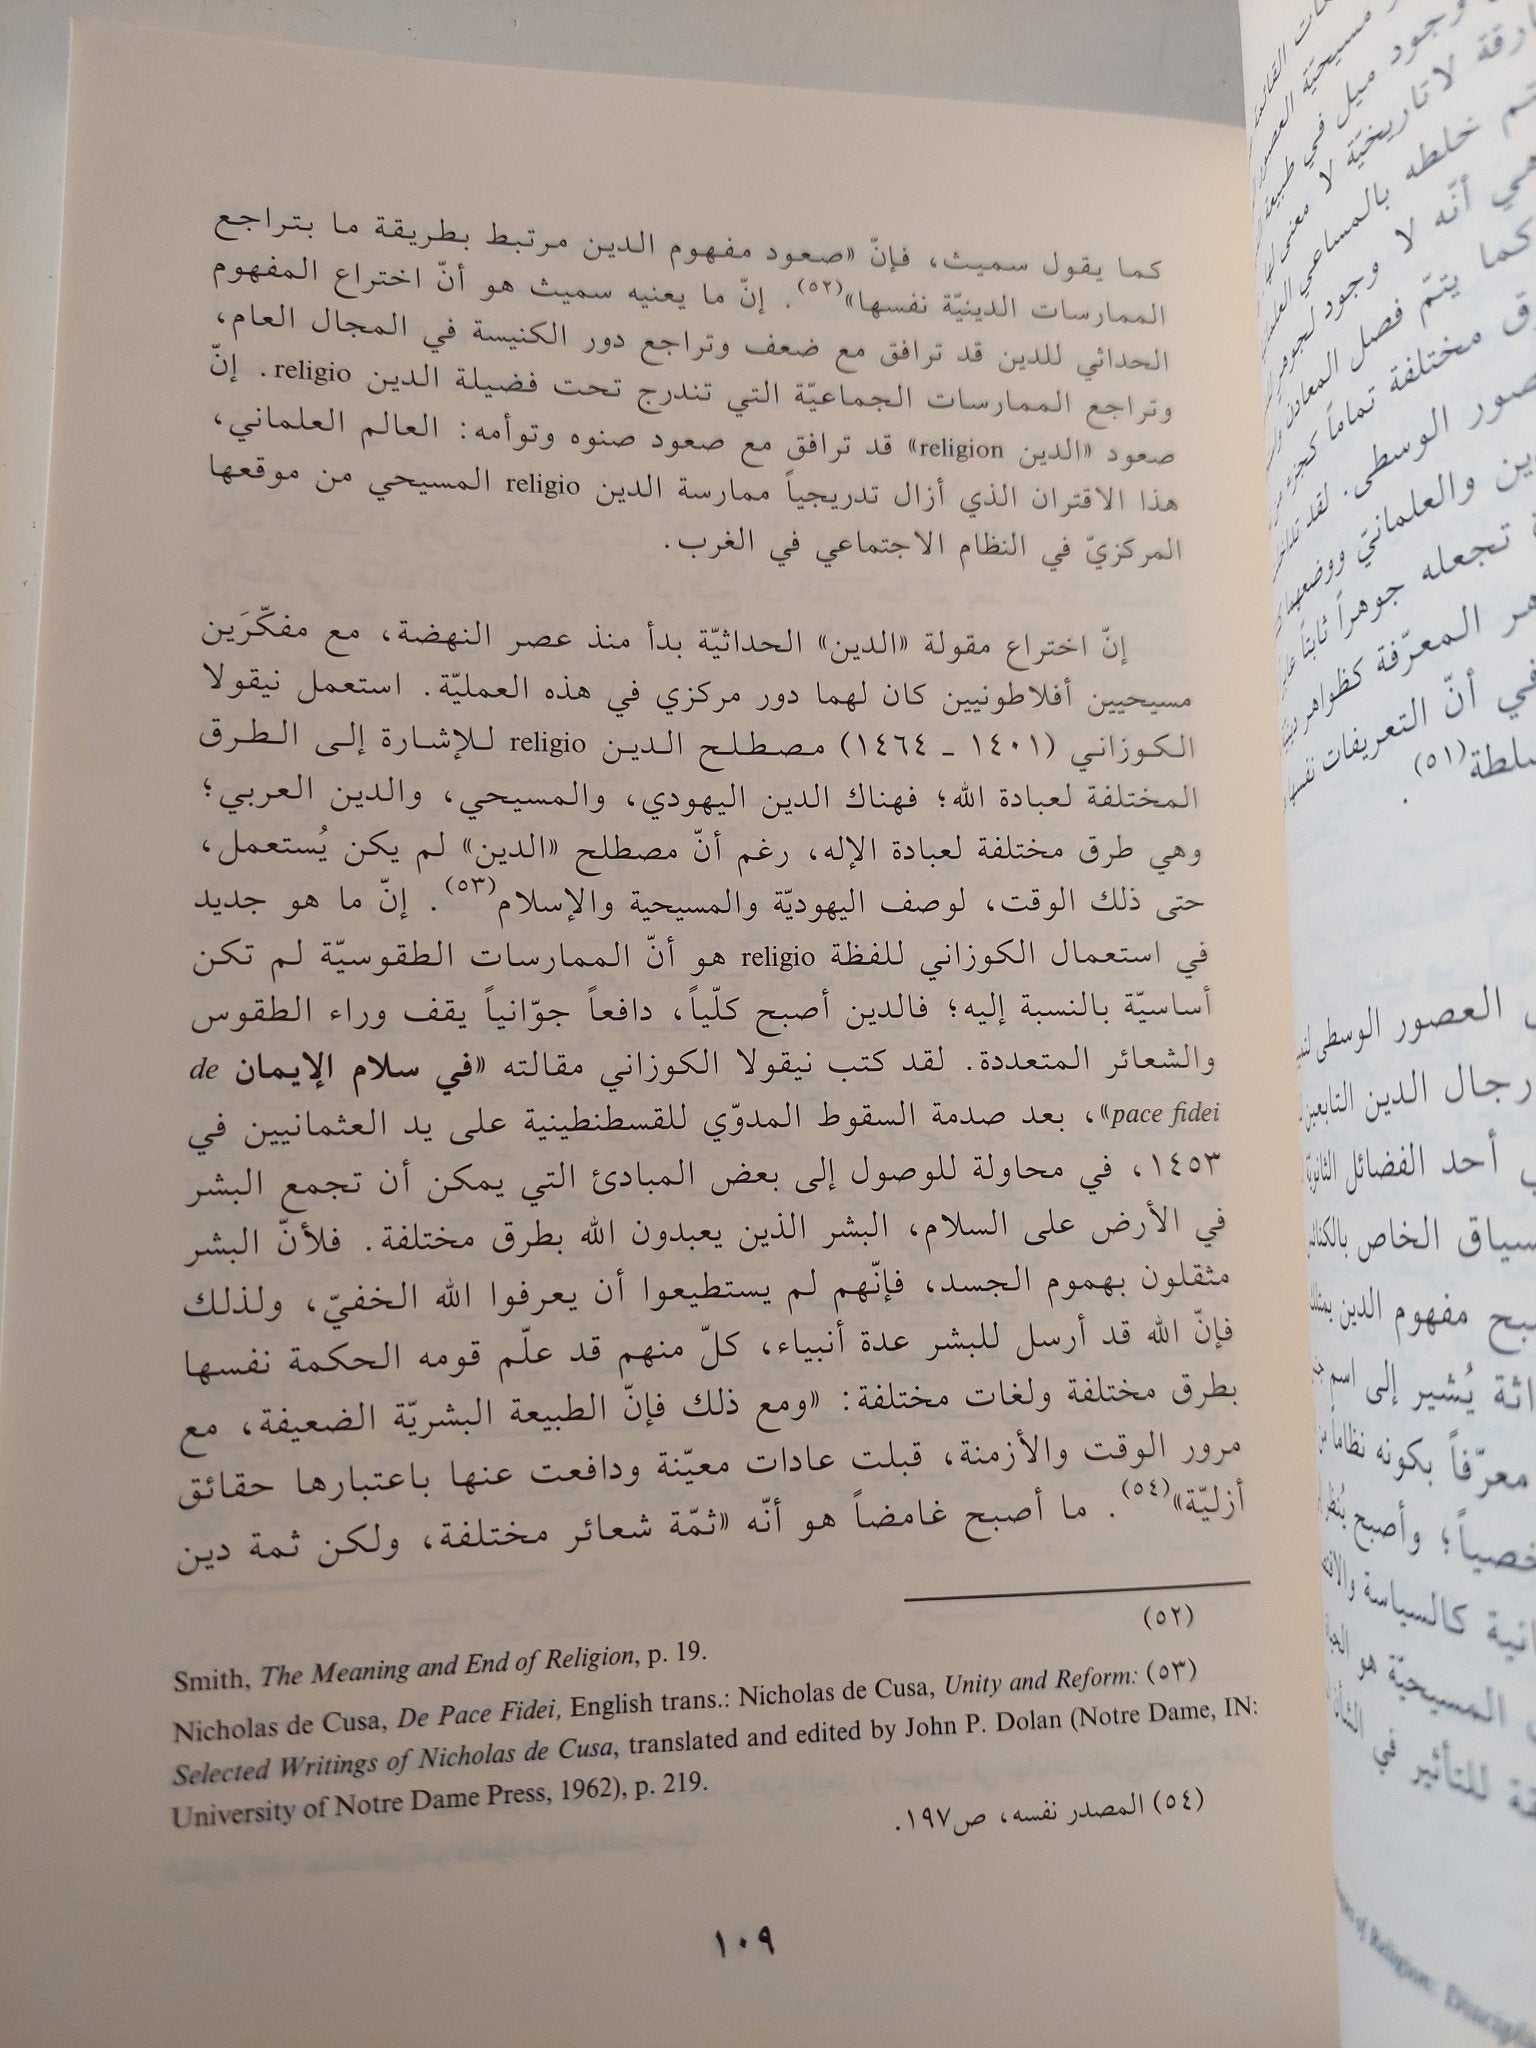 كما يقول سميث، فإنّ «صعود مفهوم الدين مرتبط بطريقة ما بتراجع
الممارسات الدينيّة نفسها»(٥٢). إنّ ما يعنيه سميث هو أنّ اختراع المفهوم
الحداثي للدين قد ترافق مع ضعف وتراجع دور الكنيسة في المجال العام،
وتراجع الممارسات الجماعيّة التي تندرج تحت فضيلة الدين religio. إنّ
صعود «الدين religion» قد ترافق مع صعود صنوه وتوأمه: العالم العلماني،
هذا الاقتران الذي أزال تدريجياً ممارسة الدين religio المسيحي من موقعها
المركزيّ في النظام الاجتماعي في الغرب.
إنّ اختراع مقولة «الدين» الحداثيّة بدأ منذ عصر النهضة، مع مفكّرَين
مسيحيين أفلاطونيين كان لهما دور مركزي في هذه العمليّة. استعمل نيقولا
الكوزاني (١٤٠١ ـ ١٤٦٤) مصطلح الدين religio للإشارة إلى الطرق
المختلفة لعبادة الله؛ فهناك الدين اليهودي، والمسيحي، والدين العربي؛
وهي طرق مختلفة لعبادة الإله، رغم أنّ مصطلح «الدين» لم يكن يُستعمل،
حتى ذلك الوقت، لوصف اليهوديّة والمسيحية والإسلام(٥٣). إنّ ما هو جديد
في استعمال الكوزاني للفظة religio هو أنّ الممارسات الطقوسيّة لم تكن
أساسيّة بالنسبة إليه؛ فالدين أصبح كلّياً، دافعاً جوّانياً يقف وراء الطقوس
والشعائر المتعددة. لقد كتب نيقولا الكوزاني مقالته «في سلام الإيمان de
pace fidei»، بعد صدمة السقوط المدوّي للقسطنطينية على يد العثمانيين في
١٤٥٣، في محاولة للوصول إلى بعض المبادئ التي يمكن أن تجمع البشر
في الأرض على السلام، البشر الذين يعبدون الله بطرق مختلفة. فلأنّ البشر
مثقلون بهموم الجسد، فإنّهم لم يستطيعوا أن يعرفوا الله الخفيّ، ولذلك
فإنّ الله قد أرسل للبشر عدة أنبياء، كلّ منهم قد علّم قومه الحكمة نفسها
بطرق مختلفة ولغات مختلفة: «ومع ذلك فإنّ الطبيعة البشريّة الضعيفة، مع
مرور الوقت والأزمنة، قبلت عادات معيّنة ودافعت عنها باعتبارها حقائق
أزليّة»(٥٤). ما أصبح غامضاً هو أنّه «ثمّة شعائر مختلفة، ولكن ثمة دين
(٥٢)
Smith, The Meaning and End of Religion, p. 19.
Nicholas de Cusa, De Pace Fidei, English trans.: Nicholas de Cusa, Unity and Reform: (٥٣)
Selected Writings of Nicholas de Cusa, translated and edited by John P. Dolan (Notre Dame, IN:
University of Notre Dame Press, 1962), p. 219.
(٥٤) المصدر نفسه، ص١٩٧.
١٠٩
وجود ميل في طبيعة
لاتاريخيّة لا معنى
تم خلطه بالمساعي
أنّه لا وجود لجوهر
كما يتمّ فصل المعادن
مختلفة تماماً
العصور الوسطى. لقد
والعلمانيّ
تجعله جوهراً ثابتاً
المعرّفة كظواهر
في أنّ التعريفات
(٥١).
العصور الوسطى
رجال الدين التابعين
أحد الفضائل الثانوية
سياق الخاص
مفهوم الدين
يُشير إلى اسم
معرّفاً بكونه نظاماً
وأصبح
كالسياسة
المسيحيّة هو
للتأثير في
of Religion: